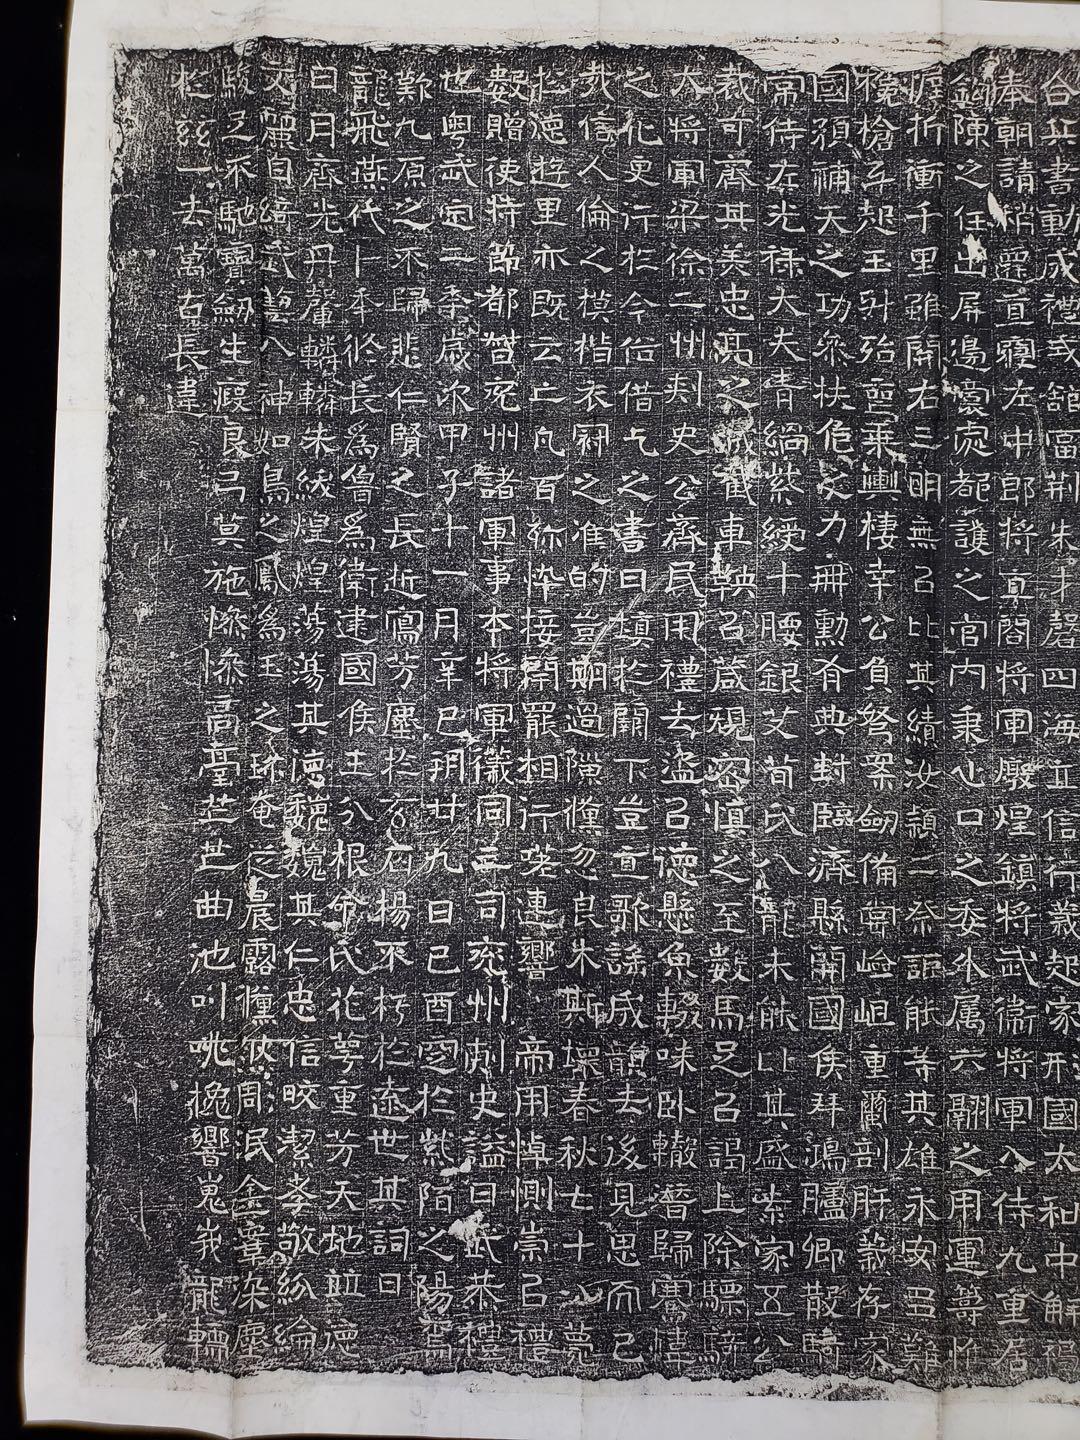 合其書動成禮或舘富荆朱才磬四海立信行義起家邢國太和中解褐
奉朝請稍遷直寢左中郎將直閤將軍燉煌鎮將武衛將軍入侍九重居
鉤陳之任出屏邊壤處都護之官內秉心口之委外属六翮之用運籌帷
幄折衝千里雖開右三明無以比其績汝潁二奈詎能等其雄永安雖
攙槍互起玉斗殆霣乘輿棲幸公負弩案劒備甞嶮岨重圍剖肝義存家
國預補天之功参扶危之力冊勳有典封臨濟縣開國侯拜鴻臚卿散騎
常侍左光禄大夫青緺紫綬十腰銀艾荀氏八龍未能比其盛袁家五公
裁可齊其美忠亮之誠載車鞅以箴規密慎之至數馬足以謌上除驃騎
大將軍梁徐二州刾史公齊民用禮去盜以德懸魚輟味卧轍潛歸騫
之化更行於今俗借之書曰填於闕下豈直歌謠成韻去後見思而已
哉信人倫之模楷衣冠之准的豈期過隟儵忽良木斯壞春秋七十八薨
於德遊里亦既云亡凡百祢悴接閈罷相行喭連響帝用悼惻崇以禮
數贈使持節都督兖州諸軍事本將軍儀同三司兖州刾史謚曰武恭禮
也粤武定二年歲次甲子十一月辛巳朔廿九日己酉窆於紫陌之陽
歎九原之不歸悲仁賢之長逝寫芳塵於玄石揚不朽於遠世其詞曰
龍飛燕代卜年脩長爲魯爲衛建國侯王分根命氏花萼重芳天地竝德
白月齊光丹轂轔轔朱紱煌煌蕩蕩其德巍巍其仁忠信皎潔孝敬紛綸
文麗自綺武契八神如鳥之鳳爲玉之琳奄庀晨露儵㷼周泯金章染塵
駿足不馳寶劒生瘢良弓莫施慘慘高臺芒芒曲池叫咷挽響嵬峩龍輀
於兹一去萬古長違